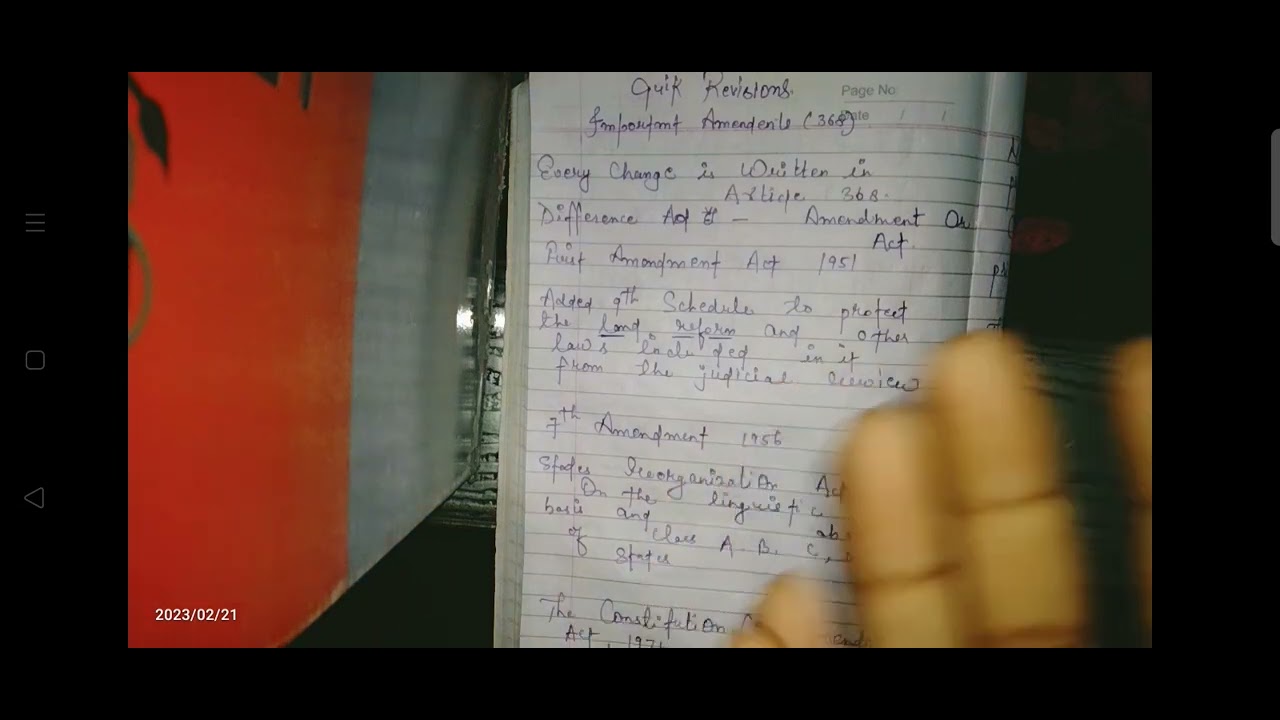 Quik Revisions.
Page No.
Important Amendents (368)
ate / /
Every Change is Written in
Article 368.
Difference Ad – Amendment Or
Act.
First Amendment Act 1951
Added 9th Schedule to protect
the land reform and other
laws included in it
from the judicial review
7th Amendment 1956
States Reorganization Act
On the linguistic
basis and ab
of class A B. C,
States
The Constitution
Act, 1971
2023/02/21